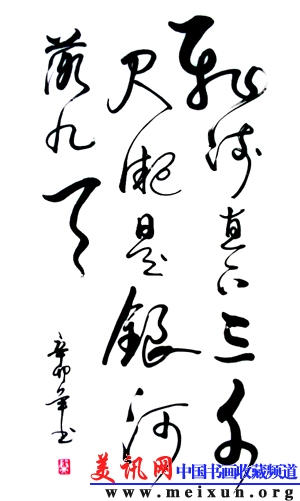 飛流直下三千
尺疑是銀河
落九天
辛卯年書
美讯网
中国书画收藏频道
www.meixun.org